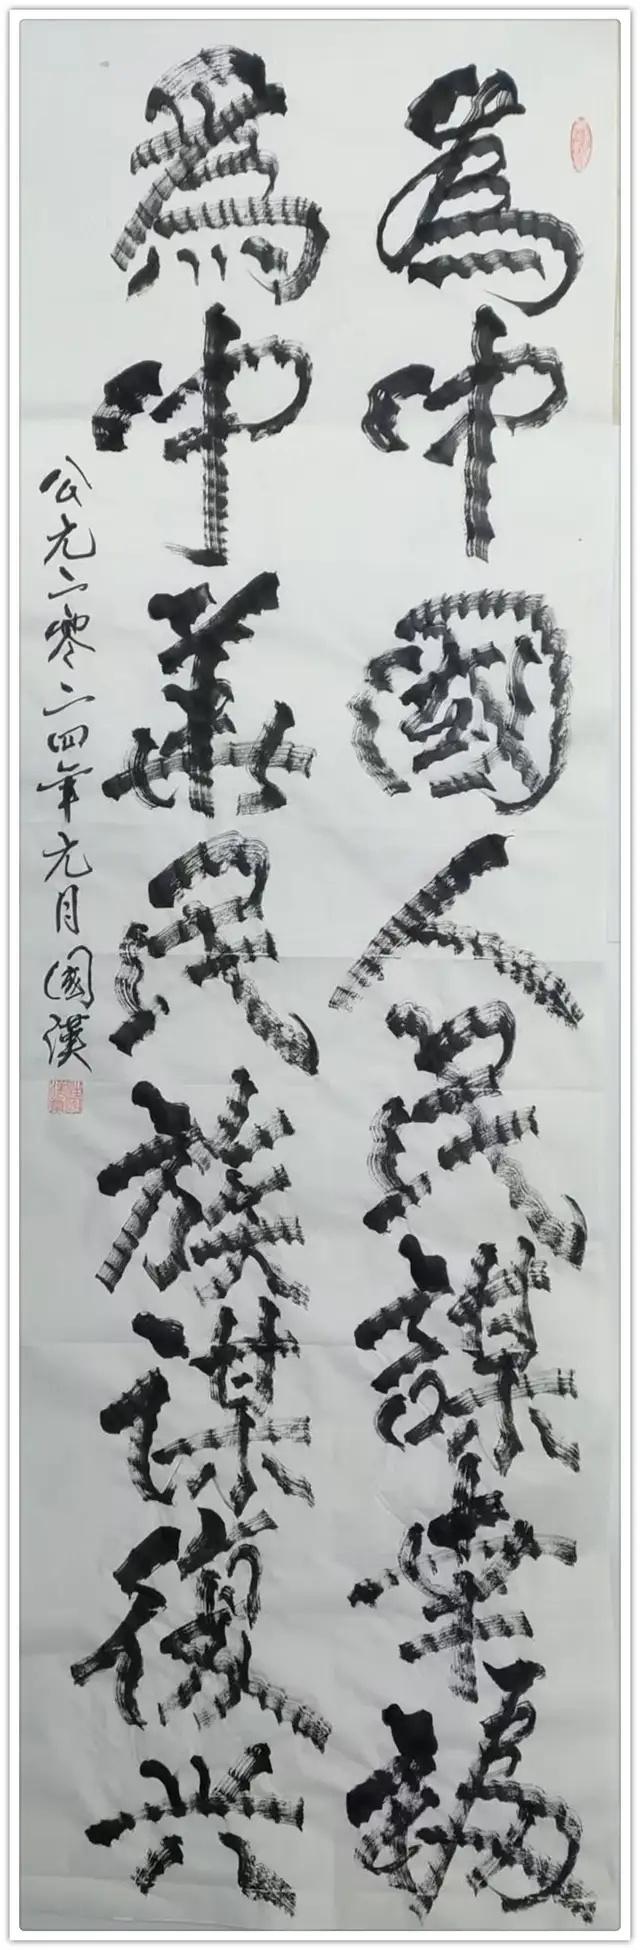 為中國人民謀幸福
為中華民族谋復兴
公元二零二四年元月國漢